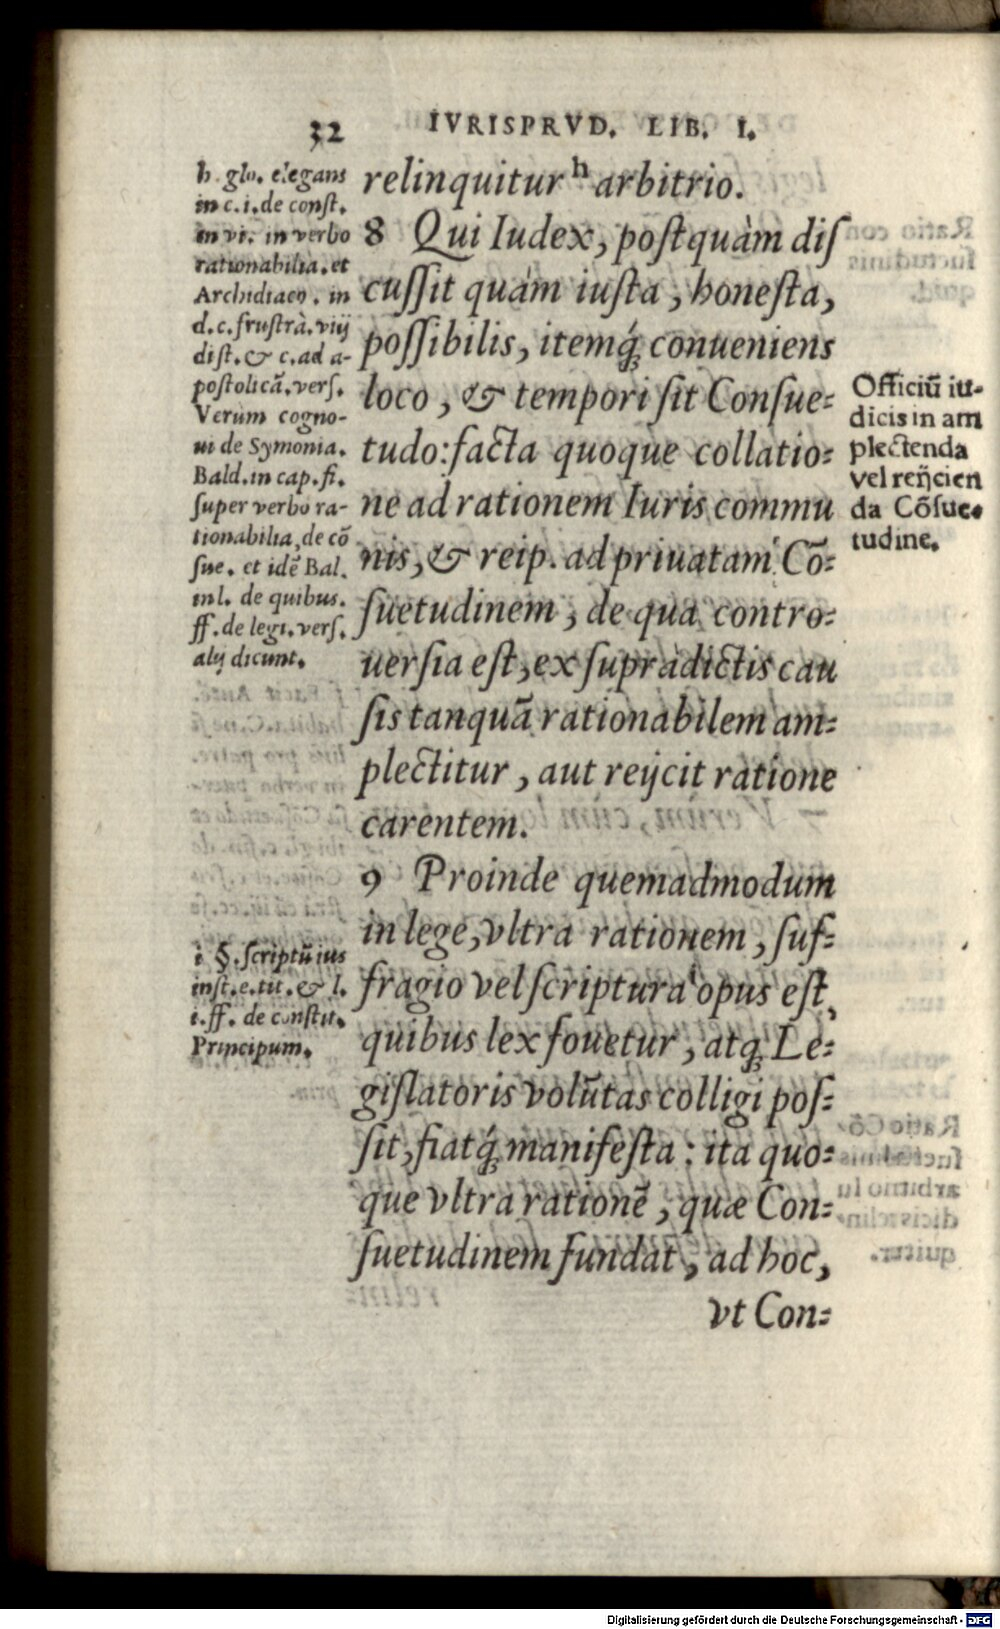 32
IVRISPRVD. LIB. I.
h glo. elegans
in c. i. de const.
in vi. in verbo
rationabilia. et
Archidiaco. in
d. c. frustrà. viij
dist. & c. ad a-
postolicã. vers.
Verùm cogno-
ui de Symonia.
Bald. in cap. fi.
super verbo ra-
tionabilia, de cõ
sue. et idẽ Bal.
in l. de quibus.
ff. de legi. vers.
alij dicunt.
relinquitur h arbitrio.
8 Qui Iudex, postquàm dis
cussit quàm iusta, honesta,
possibilis, itemq́ꝫ conueniens
loco, & tempori sit Consue-
tudo: facta quoque collatio-
ne ad rationem Iuris commu
nis, & reip. ad priuatam Cõ-
suetudinem, de qua contro-
uersia est, ex supradictis cau
sis tanquã rationabilem am-
plectitur, aut reijcit ratione
carentem.
Officiũ iu-
dicis in am
plectenda
vel reijcien
da Cõsue-
tudine.
9 Proinde quemadmodum
in lege, vltra rationem, suf-
fragio vel scriptura i opus est,
quibus lex fouetur, atqꝫ Le-
gislatoris volũtas colligi pos-
sit, fiatq́ꝫ manifesta: ita quo-
que vltra rationẽ, quæ Con-
suetudinem fundat, ad hoc,
vt Con-
i §. scriptũ ius
inst. e. tit. & l.
i. ff. de constit.
Principum.
Digitalisierung gefördert durch die Deutsche Forschungsgemeinschaft - DFG